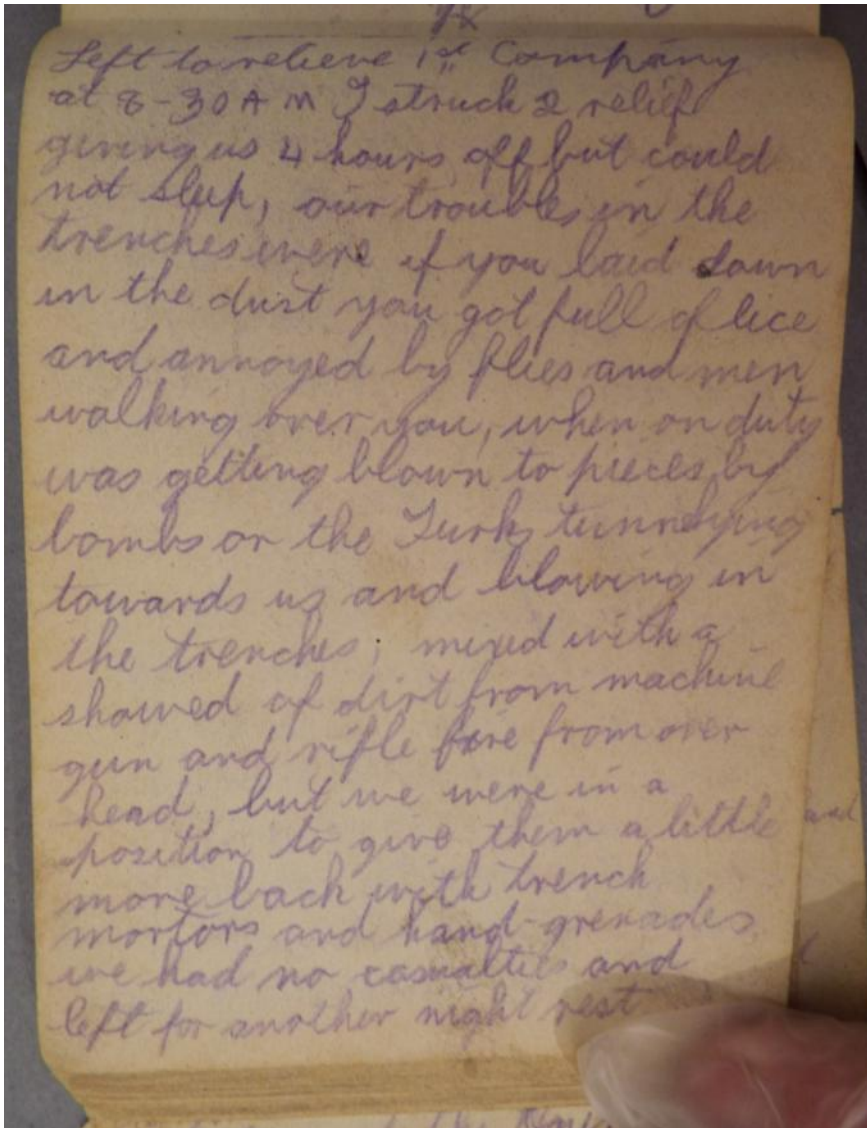 Left to relieve 1st Company
at 8-30 A M I struck 2 relief
giving us 4 hours off but could
not sleep, our troubles in the
trenches were if you laid down
in the dust you got full of lice
and annoyed by flies and men
walking over you, when on duty
was getting blown to pieces by
bombs or the Turks tunnelying
towards us and blowing in
the trenches; mixed with a
showed of dirt from machine
gun and rifle fire from over
head, but we were in a
position to give them a little
more back with trench
mortors and hand-grenades
we had no casualties and
left for another night rest